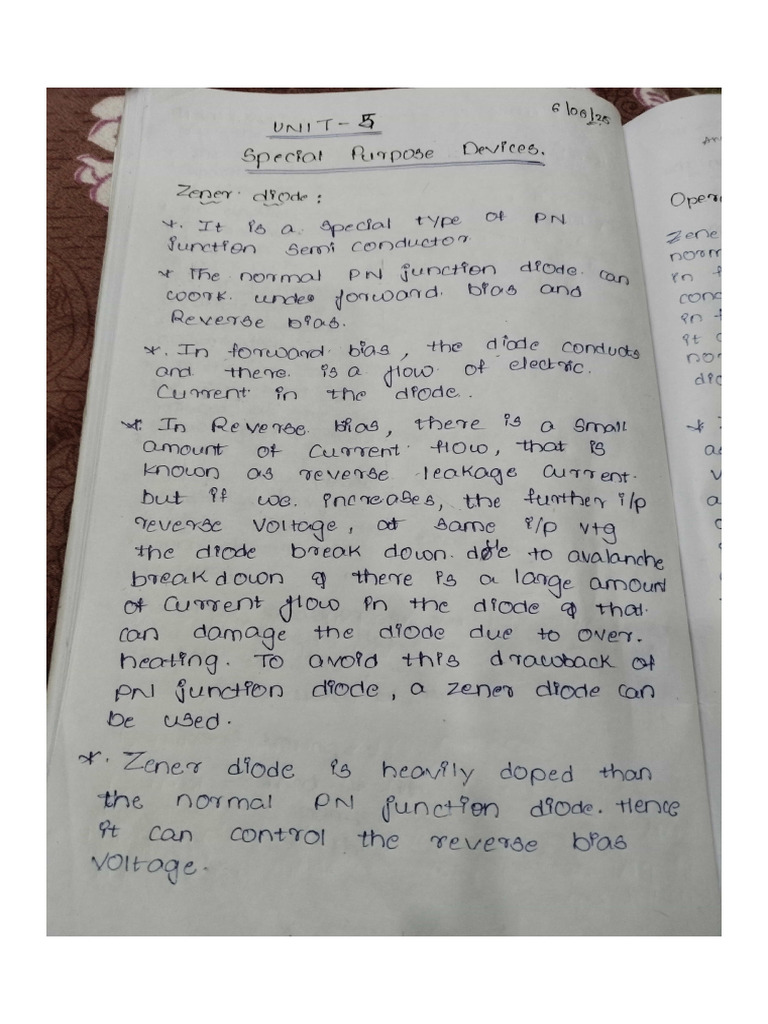 6/06/25
UNIT-5
Special Purpose Devices.
Zener diode:
*. It is a special type of PN
junction semi conductor
* The normal PN junction diode can
work under forward bias and
Reverse bias.
*. In forward bias, the diode conducts
and there is a flow of electric
Current in the diode.
*. In Reverse bias, there is a small
amount of current flow, that is
known as reverse leakage current.
but if we increases, the further i/p
reverse voltage, at same i/p vtg
the diode break down due to avalanche
break down & there is a large amount
of current flow in the diode & that
can damage the diode due to over.
heating. To avoid this drawback of
PN junction diode, a zener diode can
be used.
*. Zener diode is heavily doped than
the normal PN junction diode. Hence
it can control the reverse bias
voltage.
Oper
Zene
norm
in f
cond
in f
it c
nor
dio
*
a
v
a